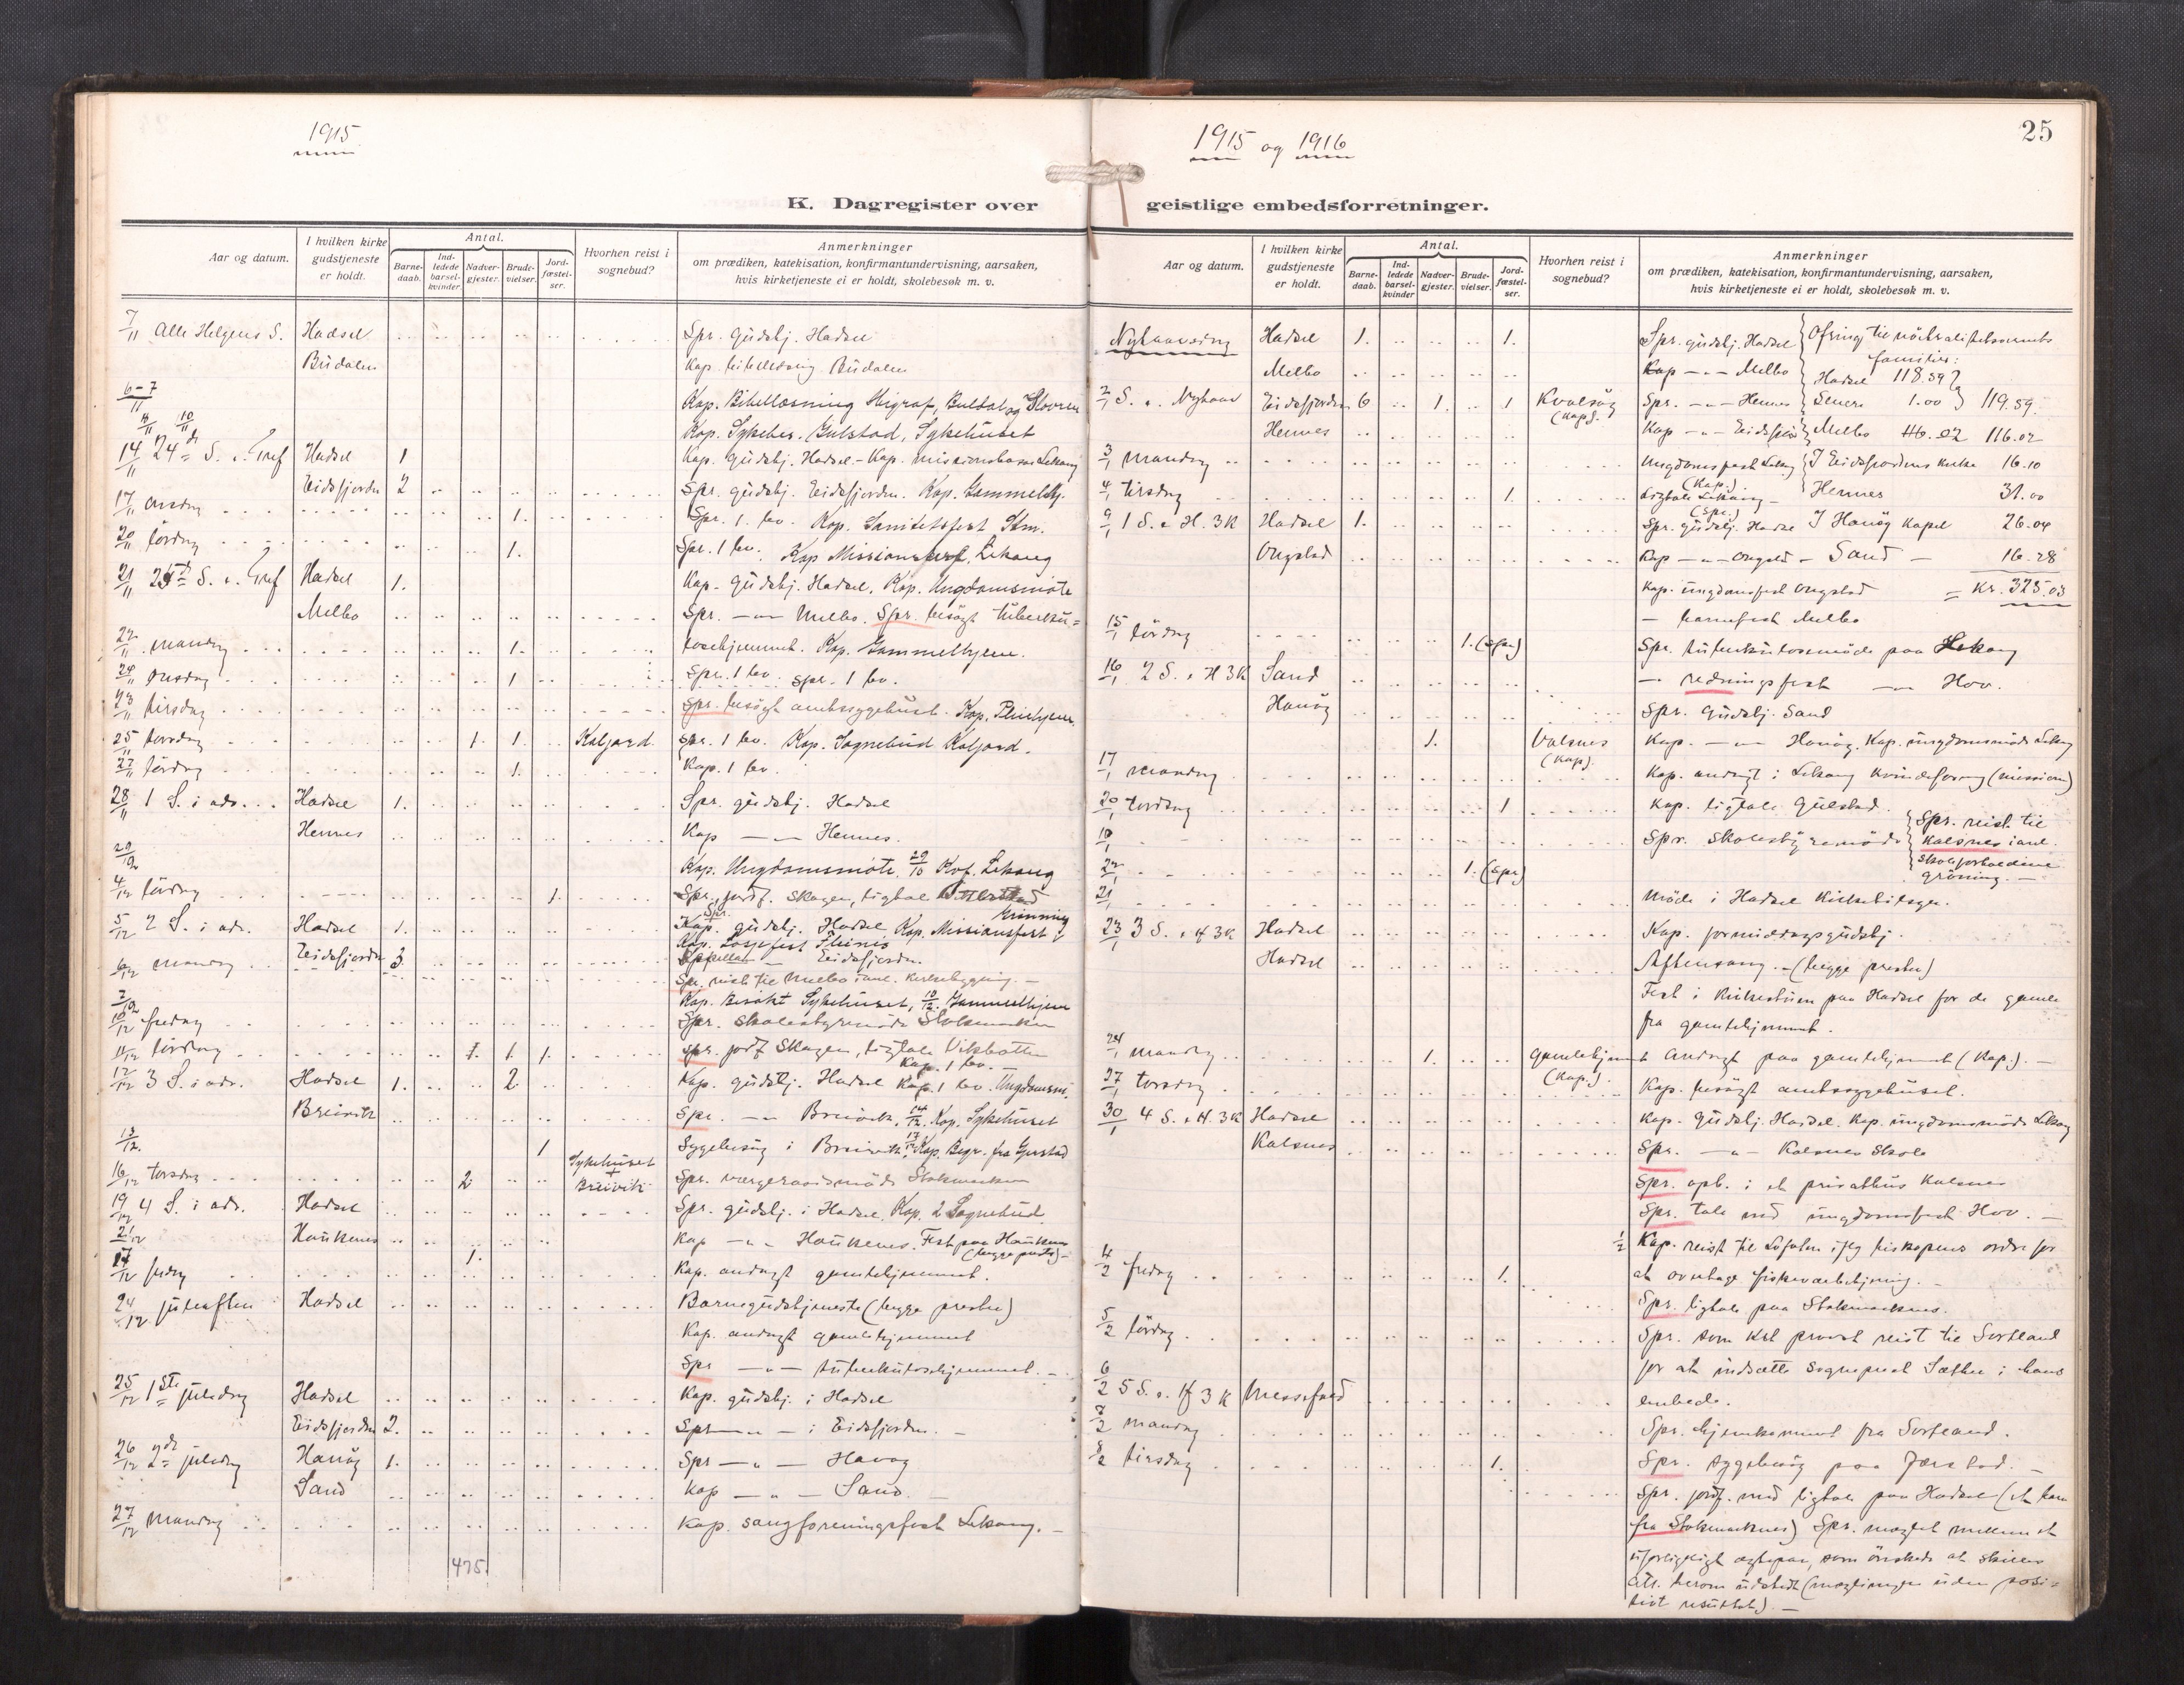 1915
K. Dagregister over
Aar og datum.
I hvilken kirke gudstjeneste er holdt.
Antal.
Barne-daab.
Ind-ledede barsel-kvinder.
Nadver-gjester.
Brude-vielser.
Jord-fæstel-ser.
Hvorhen reist i sognebud?
Anmerkninger
om prædiken, katekisation, konfirmantundervisning, aarsaken,
hvis kirketjeneste ei er holdt, skolebesøk m. v.
7/11 Alle Helgens S. Hadsel Spr. gudstj. Hadsel
Budalen Kap. bibellesning Budalen
6-7/11 Kap. Bibellæsning
Kap. Sykebes. Gulstad, Sykehuset
14/11 24de S. e. Tref Hadsel 1 Kap. gudstj. Hadsel - Kap. missionsbasar Lekang
Eidsfjorden 2 Spr. gudstj. Eidsfjorden. Kap. Gammelhj.
17/11 onsdag 1. Spr. 1 bv. Kap. Sanitetsfest Stm.
20/11 lördag 1. Spr. 1 bv. Kap Missionsfest, Lekang
21/11 25de S. e. Tref Hadsel 1. Kap. gudstj. Hadsel, Kap. Ungdomsmöte
Melbo Spr. -"- Melbo. Spr. besögt tuberku=
22/11 mandag 1. losehjemmet. Kap. Gammelhjem.
24/11 onsdag 1 Spr. 1 bv. Spr. 1 bv.
23/11 tirsdag Spr. besögt amtssygehuset. Kap. Pleiehjem
25/11 torsdag 1. 1. Kaljord Spr. 1 bv. Kap. Sognebud Kaljord.
27/11 lördag 1. Kap. 1 bv.
28/11 1 S. i adv. Hadsel 1. Spr. gudstj. Hadsel
Hennes Kap -"- Hennes.
Kap. Ungdomsmöte, Lekang
4/12 lördag 1. Spr. jordf. Skagen, ligtale
5/12 2 S. i adv. Hadsel 1. Spr. gudstj. Hadsel Kap. Missionsfest
Kap. Losjefest
6/12 mandag Eidsfjorden 3 Kapellan - Eidsfjorden.
Spr. reist til Melbo i anl. kirkebygning.
7/12 Kap. Besökt Sykehuset, 10/12 Gammelhjem
10/12 fredag Spr. skolestyremöde Stokmarknes
11/12 lördag 1. 1. 1. Spr. jordf Skagen, ligtale Vikbotten
Kap. 1 bv.
12/12 3 S. i adv. Hadsel 1. 2 Kap. gudstj. Hadsel Kap. 1 bv. Ungdomsm.
Breivik Spr. -"- Breivik, 14/12 Kap. Sykehuset
13/12. 1 Sygebesög i Breivik. Kap. Begr. fra
16/12 torsdag 2 Sykehuset + Breivik Spr. vergeraadsmöde Stokmarknes
19/12 4 S. i adv. Hadsel Spr. gudstj. i Hadsel. Kap. 2 Sognebud.
Haukenes Kap -"- Haukenes. Fest paa Haukenes
17/12 fredag 1. (begge prester)
Kap. andagt gamlehjemmet.
24/12 juleaften Hadsel Barnegudstjeneste (begge prester)
Kap. andagt gamlehjemmet
Spr -"- tuberkulosehjemmet.
25/12 1ste juledag Hadsel Kap. gudstj. i Hadsel
Eidsfjorden 2. Spr -"- i Eidsfjorden.
26/12 2de juledag Hanöy 1. Spr -"- Hanöy
Sand Kap -"- Sand.
27/12 mandag Kap. sangforeningsfest Lekang.
475.
1915 og 1916
25
geistlige embedsforretninger.
Aar og datum.
I hvilken kirke gudstjeneste er holdt.
Antal.
Barne-daab.
Ind-ledede barsel-kvinder
Nadver-gjester.
Brude-vielser.
Jord-fæstel-ser.
Hvorhen reist i sognebud?
Anmerkninger
om prædiken, katekisation, konfirmantundervisning, aarsaken,
hvis kirketjeneste ei er holdt, skolebesøk m. v.
Nyhaarsdag Hadsel 1. 1. Spr. gudstj. Hadsel Ofring til nöitralitetsvernets
Melbo Kap -"- Melbo familier:
Hadsel 118.59
2/1 S. e. Nyhaar Eidsfjorden 6 1. 1 Kvalsöy (Kap). Spr. -"- Hennes 1.00 119.59.
Hennes Kap -"- Eidsfjord Melbo 116.02 116.02
3/1 mandag Ungdomsfest Lekang (Kap.) I Eidsfjordens kirke 16.10
4/1 tirsdag 1. Ligtale Lekang (Spr.) Hennes 31.00
9/1 1 S. e H. 3K Hadsel 1. Spr. gudstj. Hadsel I Hanöy Kapel 26.04
Ongstad Kap -"- Ongstd - Sand - 16.28
Kap. ungdomsfest Ongstad = Kr. 325.03
- barnefest Melbo
15/1 lördag 1. (Spr) Spr. tuberkulosemöde paa Lekang
16/1 2 S. e H 3K Sand - redningsfest -"- Hov.
Hanöy Spr. Gudstj. Sand
1. Valsnes (Kap). Kap. -"- Hanöy. Kap. ungdomsmöde Lekang
17/1 mandag Kap. andagt i Lekang Kvindeforening (mission)
20/1 torsdag 1 Kap. ligtale Gulstad.
Spr. skolestyremöde Spr. reist til
Kalsnes i anl.
22/1 1. (Spr) skoleforholdene
21/1 Möde i Hadsel Kirketilsyn.
23/1 3 S. e H 3K Hadsel Kap. formiddagsgudstj.
Hadsel Aftensang. - (begge prester)
Fest i Kirkestuen paa Hadsel for de gamle
fra gamlehjemmet.
24/1 mandag 1. Gamlehjemmet (Kap.) Andagt paa gamlehjemmet (Kap.).
27/1 torsdag Kap. besögt amtssygehuset.
30/1 4 S. e H. 3K Hadsel Kap. Gudstj. Hadsel. Kap. ungdomsmöde Lekang
Kalsnes Spr. -"- Kalsnes Skole
Spr. opb. i et privathus Kalsnes
Spr. tale ved ungdomsfest Hov.
1/2 Kap. reist til Lofoten iflg biskopens ordre for
4/2 fredag 1. at overtage fiskeværbetjening.
Spr. ligtale paa Stokmarknes.
5/2 lördag Spr. som kst provst reist til Sortland
for at indsætte sogneprest Sæther i hans
6/2 5 S. e. H 3 K Messefald embede.
7/2 mandag Spr. hjemkommet fra Sortland.
8/2 tirsdag 1. Spr. sygebesög paa
Spr. jordf. med ligtale paa Hadsel (et barn
fra Stokmarknes) Spr. mæglet mellem et
uforligeligt egtepar, som önskede at skilles
Att. herom utstedt (mæglingen uden posi=
tivt resultat).